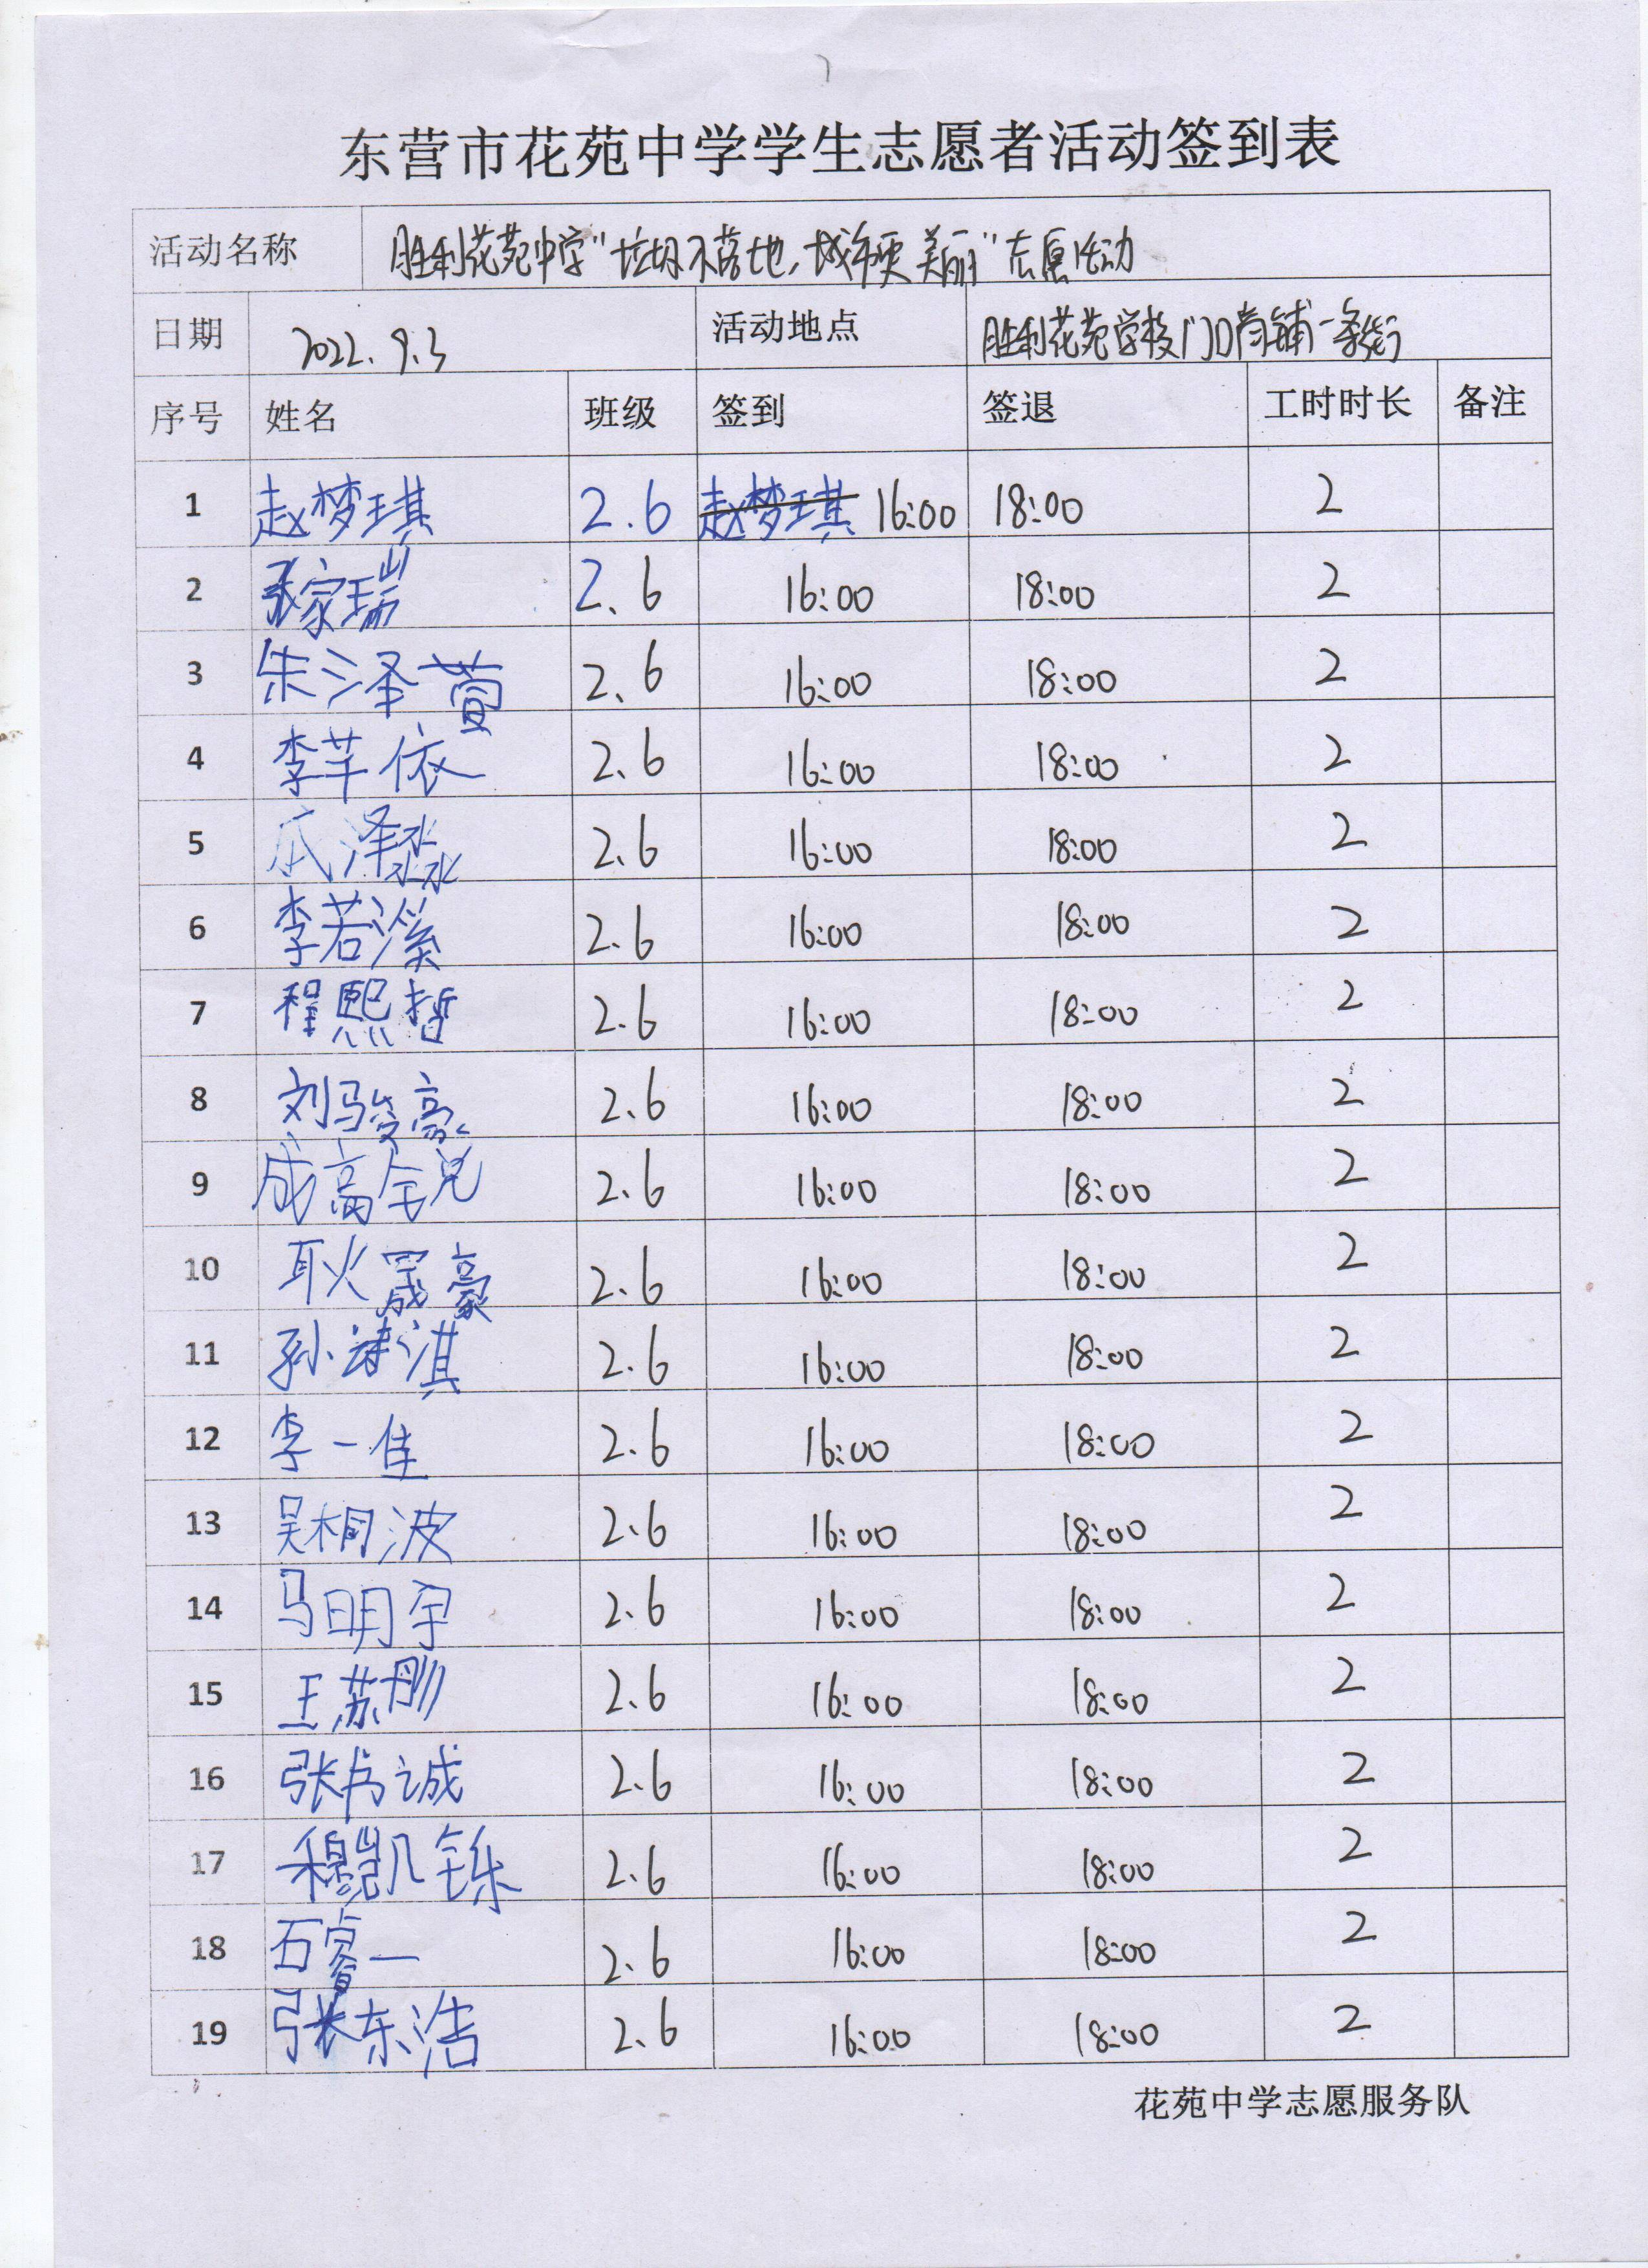 东营市花苑中学学生志愿者活动签到表
活动名称 胜利花苑中学“垃圾不落地,城市更美丽”志愿活动
日期 2022.9.3 活动地点 胜利花苑学校门口商铺一条街
序号 姓名 班级 签到 签退 工时时长 备注
1 赵梦琪 2.6 赵梦琪 16:00 18:00 2
2 张家瑞 2.6 16:00 18:00 2
3 朱泽萱 2.6 16:00 18:00 2
4 李芊依 2.6 16:00 18:00 2
5 瓜泽淼 2.6 16:00 18:00 2
6 李若溪 2.6 16:00 18:00 2
7 程熙哲 2.6 16:00 18:00 2
8 刘骏豪 2.6 16:00 18:00 2
9 成高锐 2.6 16:00 18:00 2
10 耿晟豪 2.6 16:00 18:00 2
11 孙淇 2.6 16:00 18:00 2
12 李一佳 2.6 16:00 18:00 2
13 吴桐波 2.6 16:00 18:00 2
14 马明宇 2.6 16:00 18:00 2
15 王苏彤 2.6 16:00 18:00 2
16 张书诚 2.6 16:00 18:00 2
17 穆凯铄 2.6 16:00 18:00 2
18 石睿一 2.6 16:00 18:00 2
19 张东浩 2.6 16:00 18:00 2
花苑中学志愿服务队